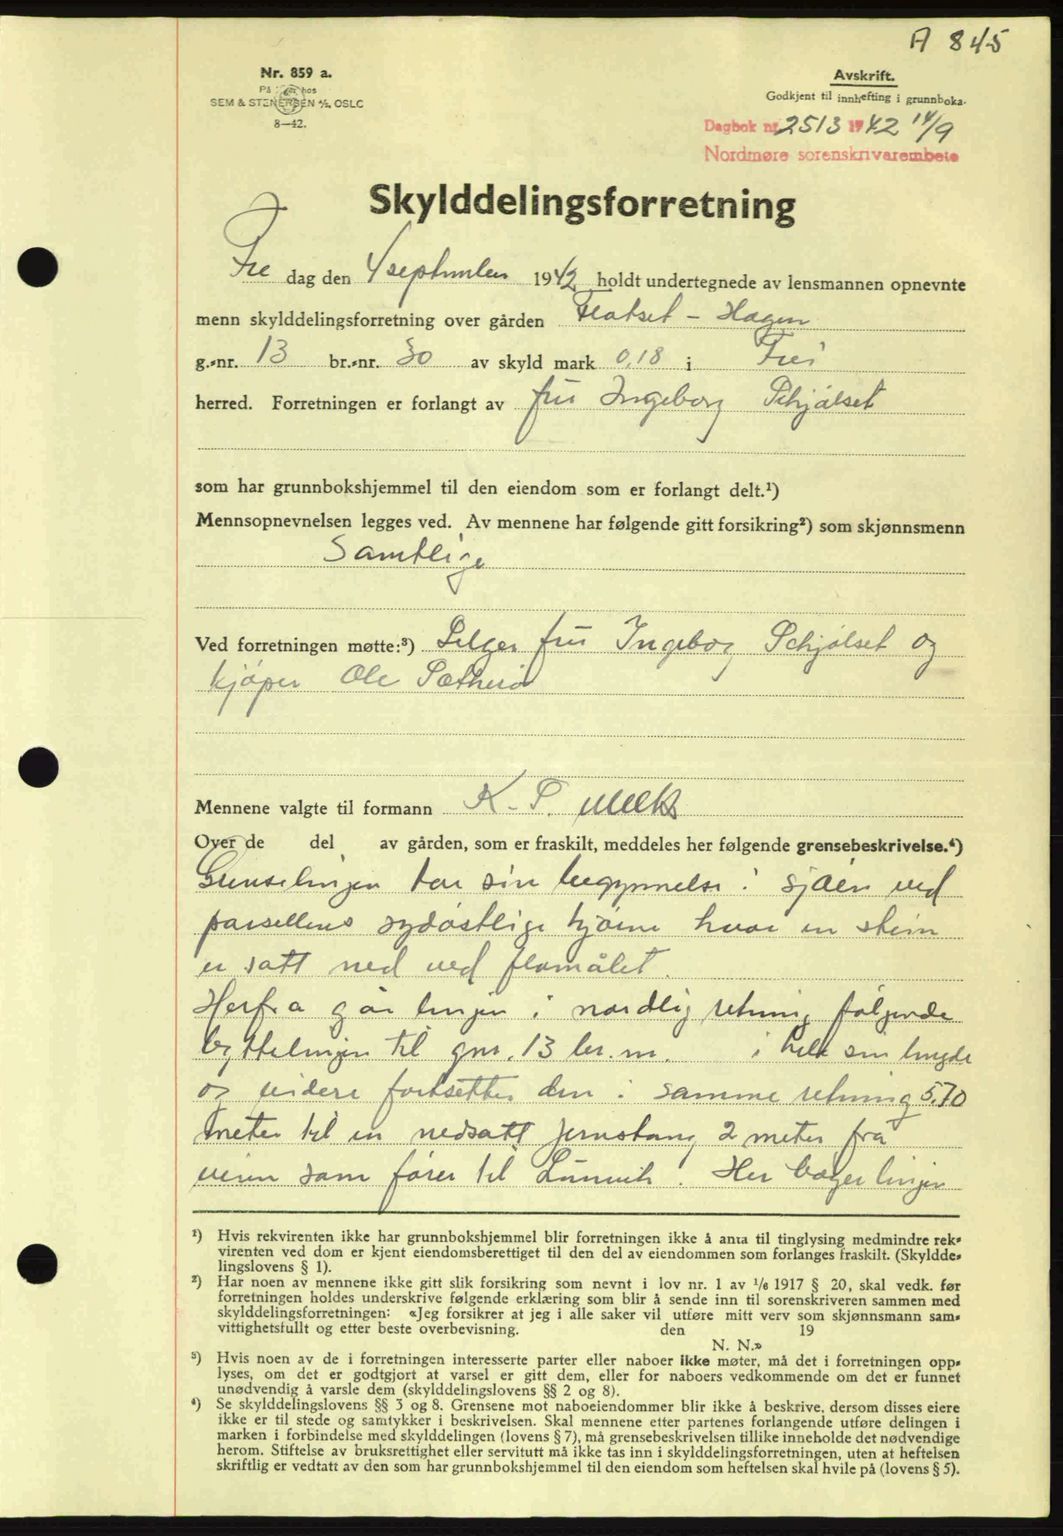 A 845
Nr. 859 a.
På lager hos
SEM & STENERSEN A/S, OSLO
8—42.
Avskrift.
Godkjent til innhefting i grunnboka.
Dagbok nr. 2513 1942 14/9
Nordmøre sorenskrivarembete
Skylddelingsforretning
Fre dag den 4 september 1942 holdt undertegnede av lensmannen opnevnte
menn skylddelingsforretning over gården Flatset - Hagen
g.-nr. 13 br.-nr. 30 av skyld mark 0,18 i Frei
herred. Forretningen er forlangt av fru Ingeborg Schjølset
som har grunnbokshjemmel til den eiendom som er forlangt delt.¹)
Mennsopnevnelsen legges ved. Av mennene har følgende gitt forsikring²) som skjønnsmenn
Samtlige
Ved forretningen møtte:³) Selger fru Ingebog Schjølset og
kjøper Ole
Mennene valgte til formann K. P.
Over de del av gården, som er fraskilt, meddeles her følgende grensebeskrivelse.⁴)
Grenselinjen tar sin begynnelse i sjøen ved
parsellens sydøstlige hjørne hvor en stein
er satt ned ved flomålet.
Herfra går linjen i nordlig retning følgende
byttelinjen til gnr. 13 br. nr. i hele sin lengde
og videre fortsetter den i samme retning 5,70
meter til en nedsatt jernstang 2 meter fra
veien som fører til . Her bøyer linjen
¹) Hvis rekvirenten ikke har grunnbokshjemmel blir forretningen ikke å anta til tinglysing medmindre rek-
virenten ved dom er kjent eiendomsberettiget til den del av eiendommen som forlanges fraskilt. (Skyldde-
lingslovens § 1).
²) Har noen av mennene ikke gitt slik forsikring som nevnt i lov nr. 1 av 1/6 1917 § 20, skal vedk. før
forretningen holdes underskrive følgende erklæring som blir å sende inn til sorenskriveren sammen med
skylddelingsforretningen: «Jeg forsikrer at jeg i alle saker vil utføre mitt verv som skjønnsmann sam-
vittighetsfullt og etter beste overbevisning. den 19
N. N.»
³) Hvis noen av de i forretningen interesserte parter eller naboer ikke møter, må det i forretningen opp-
lyses, om det er godtgjort at varsel er gitt dem, eller for naboers vedkommende om det er funnet
unødvendig å varsle dem (skylddelingslovens §§ 2 og 8).
⁴) Se skylddelingslovens §§ 3 og 8. Grensene mot naboeiendommer blir ikke å beskrive, dersom disses eiere
ikke er til stede og samtykker i beskrivelsen. Skal mennene etter partenes forlangende utføre delingen i
marken i forbindelse med skylddelingen (lovens § 7), må grensebeskrivelsen tillike inneholde det nødvendige
herom. Stiftelse av bruksrettighet eller servitutt må ikke tas inn i skylddelingsforretningen, uten at heftelsen
skriftlig er vedtatt av den som har grunnbokshjemmel til den eiendom som heftelsen skal hvile på (lovens § 5).